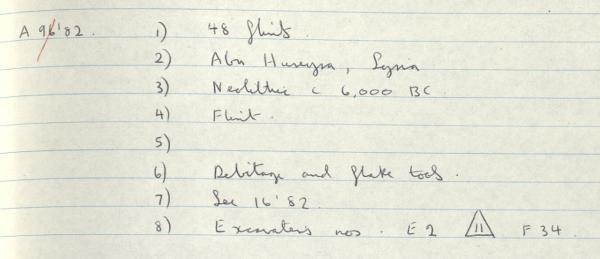 A 96'82. 1) 48 flints.
2) Abu Hureyra, Syria
3) Neolithic c 6,000 BC
4) Flint.
5)
6) Debitage and flake tools.
7) See 16'82.
8) Excavators nos. E 2 11 F 34